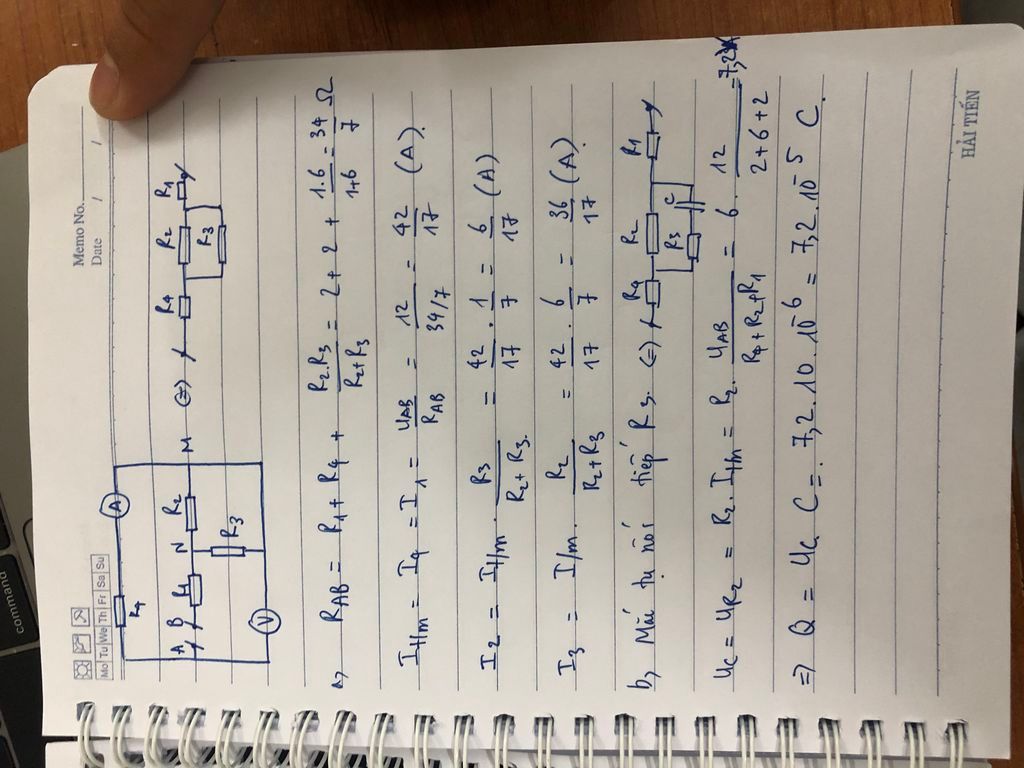 Memo No.
Date / /
Mo Tu We Th Fr Sa Su
R4 A
A B R1 N R2 M
R3
V
(=) R4 R2 R1
R3
a, RAB = R1 + R4 + R2.R3/R2+R3 = 2+2+ 1.6/1+6 = 34/7 Ω
I+/m = I4 = I1 = UAB/RAB = 12/34/7 = 42/17 (A).
I2 = I+/m. R3/R2+R3. = 42/17 . 1/7 = 6/17 (A)
I3 = I/m. R2/R2+R3 = 42/17 . 6/7 = 36/17 (A).
b, Mắc tụ nối tiếp R3. (=) R4 R2 R1
R3 C
UC = UR2 = R2. I+/m = R2. UAB/R4+R2+R1 = 6. 12/2+6+2 = 7,2
=) Q = UC C = 7,2.10.10^-6 = 7,2.10^-5 C.
HẢI TIẾN
command